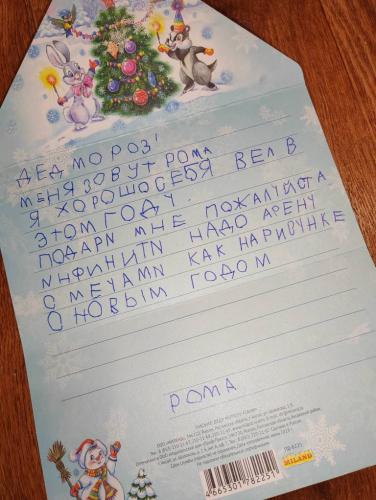 ДЕД МОРОЗ!
МЕНЯ ЗОВУТ РОМА
Я ХОРОШО СЕБЯ ВЕЛ В
ЭТОМ ГОДУ.
ПОДАРИ МНЕ ПОЖАЛУЙСТА
ИНФИНИТИ НАДО АРЕНУ
С МЕЧАМИ КАК НА РИСУНКЕ
С НОВЫМ ГОДОМ
РОМА
MILAND
4665301782251